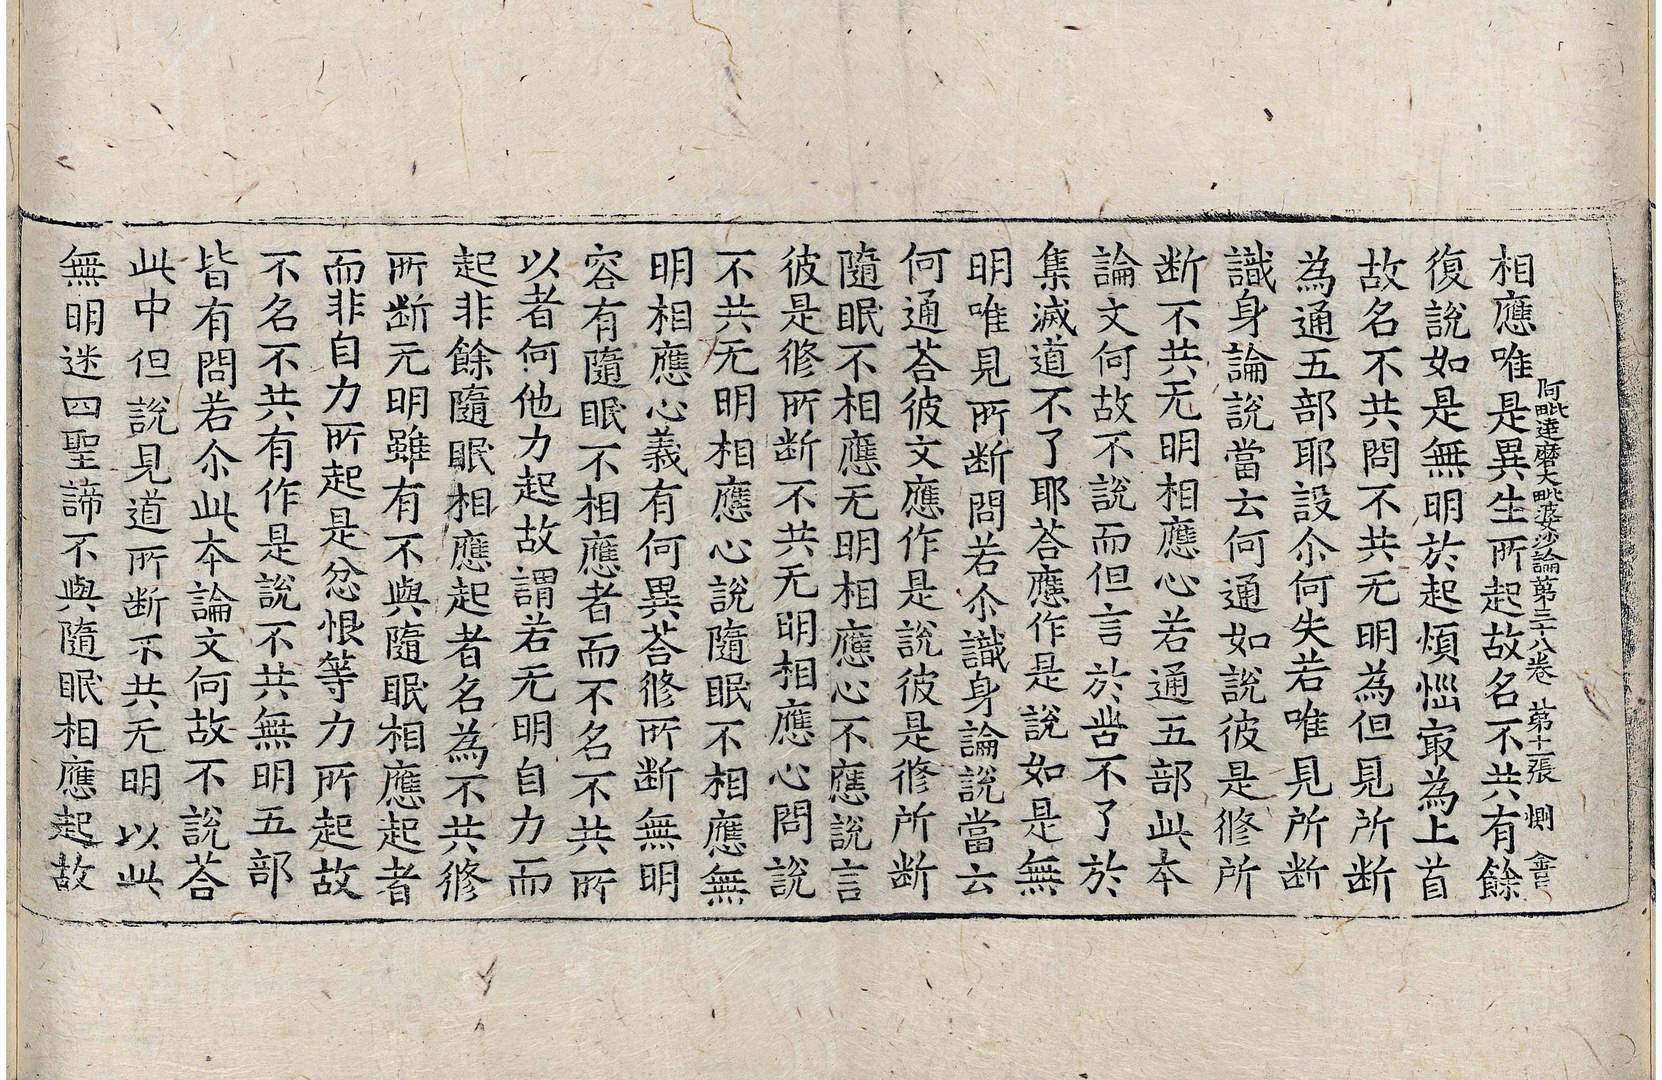 阿毗達磨大毗婆沙論第三十八卷 第十張 惻
相應唯是異生所起故名不共有餘
復說如是無明於起煩惱㝡為上首
故名不共問不共无明為但見所断
為通五部耶設尒何失若唯見所断
識身論說當云何通如說彼是修所
断不共无明相應心若通五部此本
論文何故不說而但言於苦不了於
集滅道不了耶荅應作是說如是無
明唯見所断問若尒識身論說當云
何通荅彼文應作是說彼是修所断
隨眠不相應无明相應心不應說言
彼是修所断不共无明相應心問說
不共无明相應心說隨眠不相應無
明相應心義有何異荅修所断無明
容有隨眠不相應者而不名不共所
以者何他力起故謂若无明自力而
起非餘隨眠相應起者名為不共修
所断无明雖有不與隨眠相應起者
而非自力所起是忿恨等力所起故
不名不共有作是說不共無明五部
皆有問若尒此本論文何故不說荅
此中但說見道所断不共无明以此
無明迷四聖諦不與隨眠相應起故